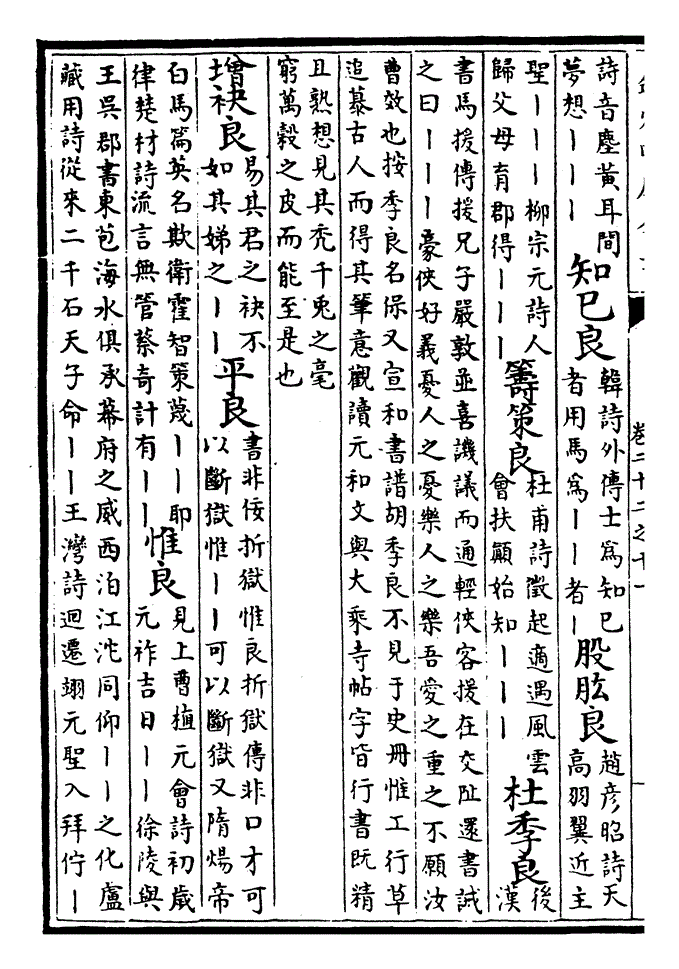 卷二十二之十一
詩音塵黃耳間
夢想｜｜｜
知己良
韓詩外傳士為知己
者用馬為｜｜者｜
股肱良
趙彦昭詩天
高羽翼近主
聖｜｜｜柳宗元詩人
歸父母育郡得｜｜｜
籌策良
杜甫詩徵起適遇風雲
會扶顛始知｜｜｜
杜季良
後
漢
書馬援傳援兄子嚴敦並喜譏議而通輕俠客援在交趾還書誡
之曰｜｜｜豪俠好義憂人之憂樂人之樂吾愛之重之不願汝
曹效也按季良名保又宣和書譜胡季良不見于史冊惟工行草
追慕古人而得其筆意觀讀元和文與大乘寺帖字皆行書既精
且熟想見其禿千兎之毫
窮萬穀之皮而能至是也
增袂良
易其君之袂不
如其娣之｜｜
平良
書非佞折獄惟良折獄傳非口才可
以斷獄惟｜｜可以斷獄又隋煬帝
白馬篇英名欺衛霍智策蔑｜｜耶
律楚材詩流言無管蔡奇計有｜｜
惟良
見上曹植元會詩初歲
元祚吉日｜｜徐陵與
王吳郡書東苞海水俱承幕府之威西泊江沱同仰｜｜之化盧
藏用詩從來二千石天子命｜｜王灣詩迴遷翊元聖入拜佇｜